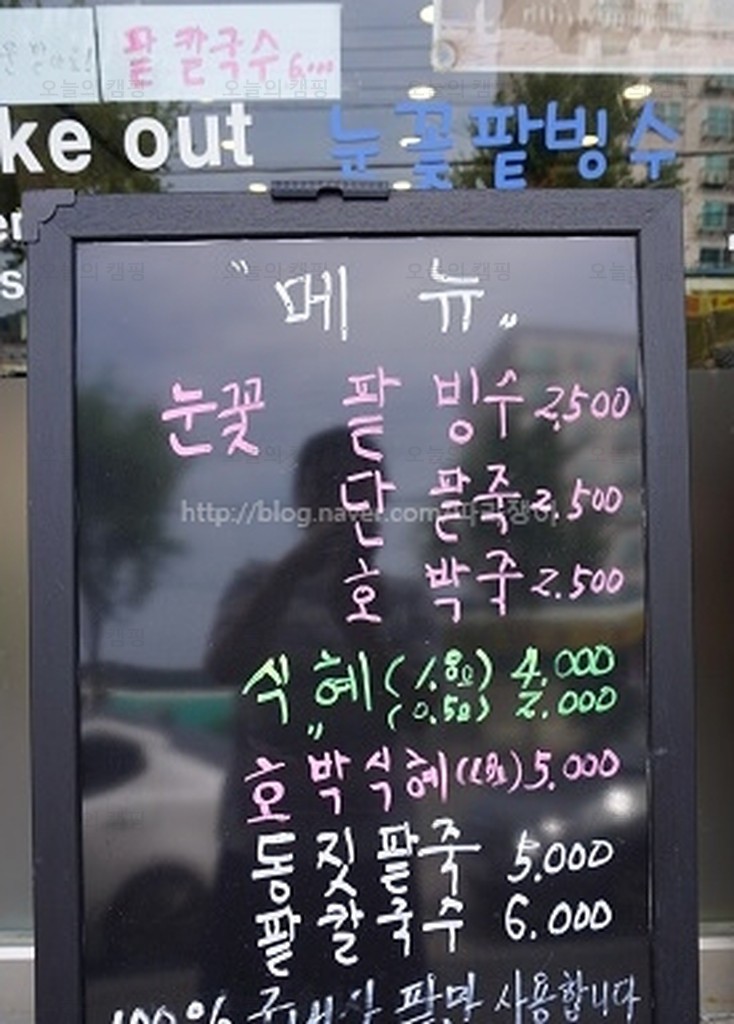 팥 칼국수 6,000
ke out 눈꽃팥빙수
"메 뉴"
눈꽃 팥 빙수 2,500
단 팥죽 2,500
호 박죽 2.500
식혜 (1.8ℓ) 4.000
〃 (0.5ℓ) 2.000
호박식혜 5.000
동짓팥죽 5.000
팥칼국수 6.000
100% 국내산 팥만 사용합니다
http://blog.naver.com/
오늘의 캠핑